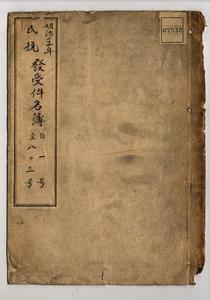 明治三十年
民抗 發受件名簿
自一号
至八十三号
07532